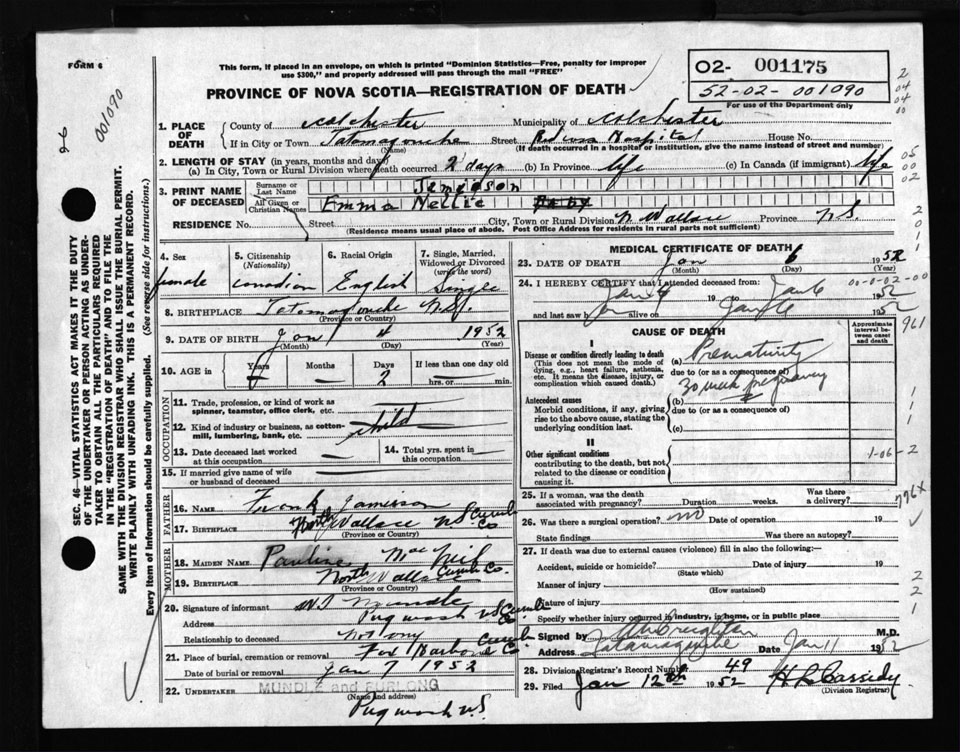 FORM 6
This form, if placed in an envelope, on which is printed "Dominion Statistics—Free, penalty for improper
use $300," and properly addressed will pass through the mail "FREE"
PROVINCE OF NOVA SCOTIA—REGISTRATION OF DEATH
02- 001175
52-02-001090
For use of the Department only
001090
SEC. 46—VITAL STATISTICS ACT MAKES IT THE DUTY
OF THE UNDERTAKER OR PERSON ACTING AS UNDER-
TAKER TO OBTAIN ALL THE PARTICULARS REQUIRED
IN THE "REGISTRATION OF DEATH" AND TO FILE THE
SAME WITH THE DIVISION REGISTRAR WHO SHALL ISSUE THE BURIAL PERMIT.
WRITE PLAINLY WITH UNFADING INK. THIS IS A PERMANENT RECORD.
Every item of Information should be carefully supplied. (See reverse side for instructions.)
1. PLACE OF DEATH County of Colchester Municipality of Colchester
If in City or Town Tatamagouche Street Hospital House No.
(Name) (If death occurred in a hospital or institution, give the name instead of street and number)
2. LENGTH OF STAY (in years, months and days)
(a) In City, Town or Rural Division where death occurred 2 days (b) In Province life (c) In Canada (if immigrant) life
3. PRINT NAME OF DECEASED Surname or Last Name Jamieson
All Given or Christian Names Emma Nellie Baby
RESIDENCE No. Street City, Town or Rural Division N. Wallace Province N.S.
(Residence means usual place of abode. Post Office Address for residents in rural parts not sufficient)
4. Sex female
5. Citizenship (Nationality) Canadian
6. Racial Origin English
7. Single, Married, Widowed or Divorced (write the word) Single
8. BIRTHPLACE Tatamagouche N.S.
(Province or Country)
9. DATE OF BIRTH Jan 4 1952
(Month) (Day) (Year)
10. AGE Years Months Days If less than one day old
— 2 hrs. or min.
OCCUPATION
11. Trade, profession, or kind of work as
spinner, teamster, office clerk, etc.
12. Kind of industry or business, as cotton-
mill, lumbering, bank, etc. child
13. Date deceased last worked
at this occupation —
14. Total yrs. spent in
this occupation —
15. If married give name of wife
or husband of deceased —
FATHER
16. Name Frank Jamieson
17. Birthplace North Wallace N.S. Cumb Co
(Province or Country)
MOTHER
18. Maiden Name Pauline MacNeil
19. Birthplace North Wallace Cumb Co.
(Province or Country)
20. Signature of informant Mundle
Address Pugwash N.S. Cumb Co
Relationship to deceased not any
21. Place of burial, cremation or removal Fox Harbour Cumb Co.
Date of burial or removal Jan 7 1952
22. UNDERTAKER MUNDLE and FURLONG
(Name and address)
Pugwash N.S.
MEDICAL CERTIFICATE OF DEATH
23. DATE OF DEATH Jan 6 1952
(Month) (Day) (Year)
24. I HEREBY CERTIFY that I attended deceased from:
Jan 4 19 to Jan 6 1952
and last saw h alive on Jan 6 1952
00-0-02-00
CAUSE OF DEATH
Approximate interval between cause and death
I
Disease or condition directly leading to death
(This does not mean the mode of
dying, e.g., heart failure, asthenia,
etc. It means the disease, injury, or
complication which caused death.)
(a) Prematurity
due to (or as a consequence of)
30 week pregnancy
Antecedent causes
Morbid conditions, if any, giving
rise to the above cause, stating the
underlying condition last.
(b)
due to (or as a consequence of)
(c)
II
Other significant conditions
contributing to the death, but not
related to the disease or condition
causing it.
1-06-2
961
776X
25. If a woman, was the death
associated with pregnancy? Duration weeks. Was there a delivery?
26. Was there a surgical operation? no Date of operation 19
State findings Was there an autopsy?
27. If death was due to external causes (violence) fill in also the following:—
Accident, suicide or homicide? Date of injury 19
(State which)
Manner of injury
(How sustained)
Nature of injury
Specify whether injury occurred in industry, in home, or in public place
Signed by Creighton M.D.
Address Tatamagouche Date Jan 11 1952
28. Division Registrar's Record Number 49
29. Filed Jan 12th 1952 H L Cassidy
(Division Registrar)